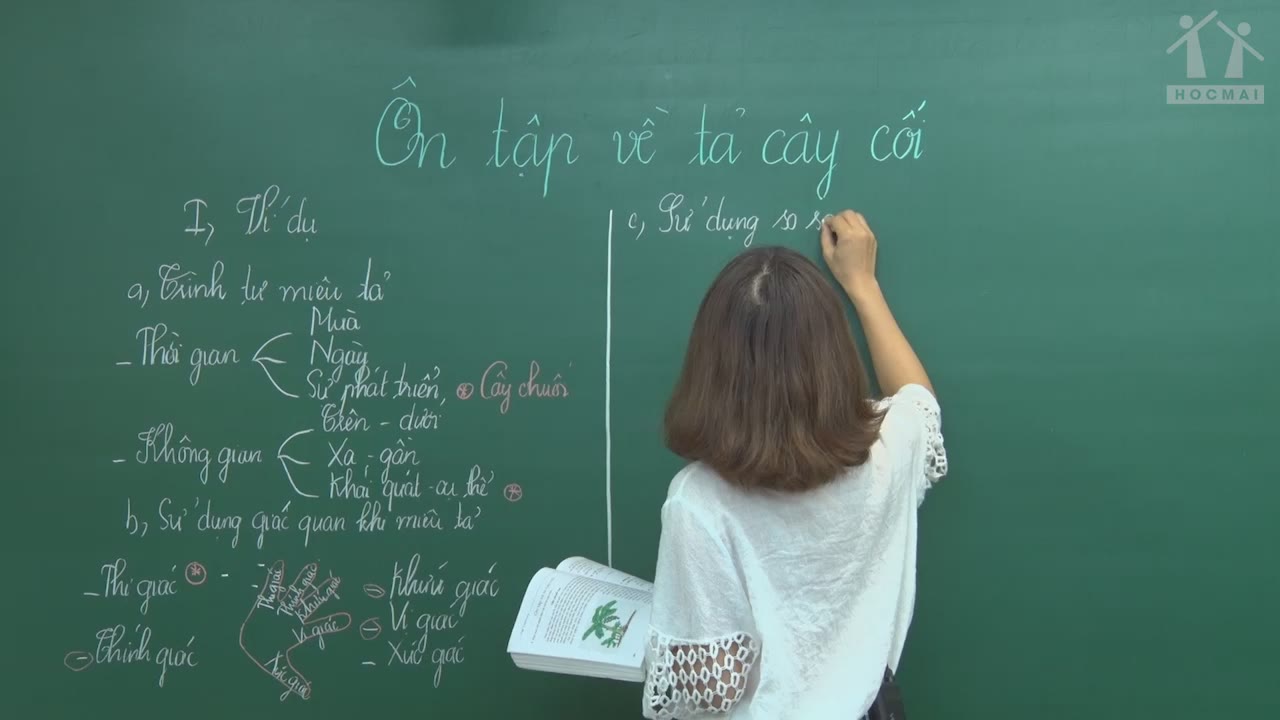 HOCMAI
Ôn tập về tả cây cối
I, Ví dụ
a, Trình tự miêu tả
- Thời gian
Mùa
Ngày
Sự phát triển, * Cây chuối
- Không gian
Trên - dưới
Xa - gần
Khái quát - cụ thể *
b, Sử dụng giác quan khi miêu tả
- Thị giác *
- Thính giác
Thị giác
Thính giác
Khứu giác
Vị giác
Xúc giác
- Khứu giác
- Vị giác
- Xúc giác
c, Sử dụng so s